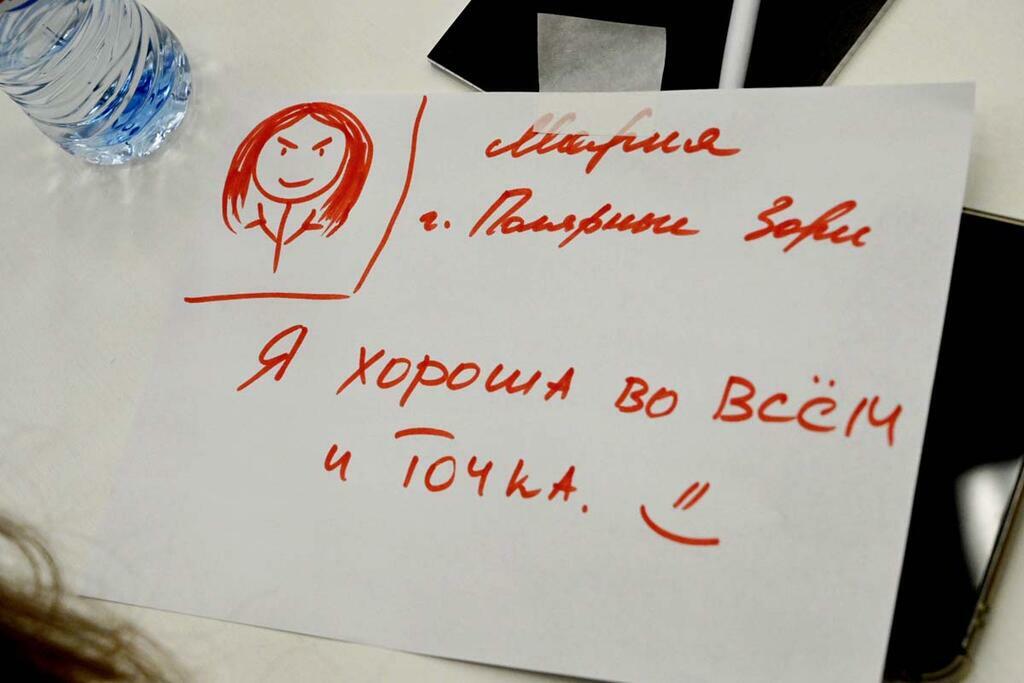 Мария
г. Полярные Зори
Я хороша во всём
и точка.